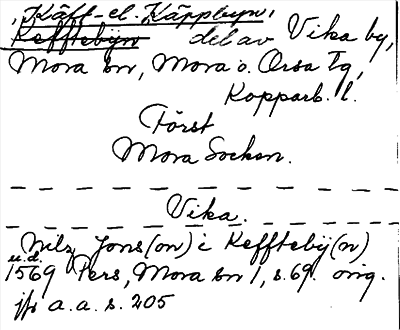 'Käff- el. Käppbyn'
Kefftebÿn del av Vika by,
Mora sn, Mora o. Orsa tg,
Kopparb. l.
Först
Mora Socken.
Vika.
Nilz Jons(on) i Kefftebÿ(n)
u.d.
1569 Pers, Mora sn 1, s. 69. orig.
jfr a.a. s. 205